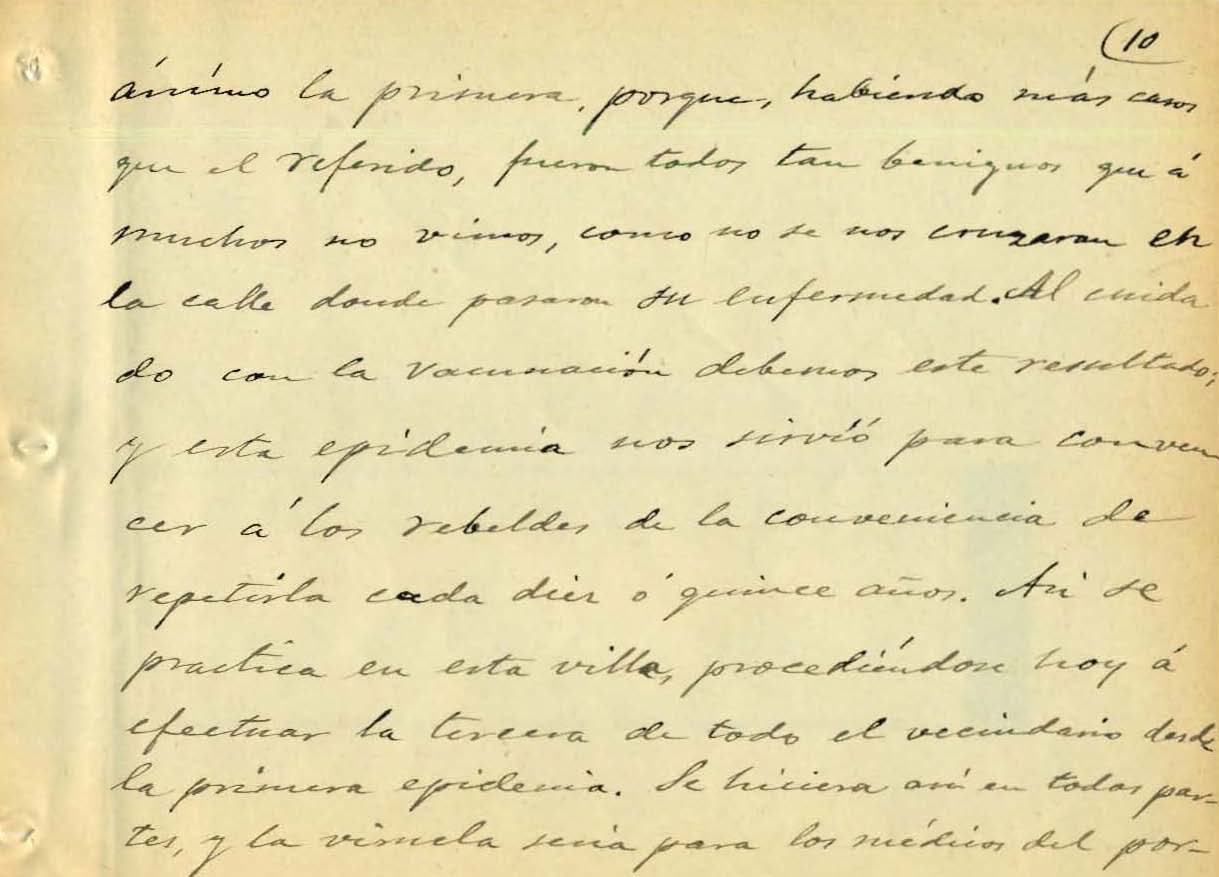 (10
ánimo la primera, porque, habiendo más casos
que el referido, fueron todos tan benignos que á
muchos no vimos, como no se nos cruzaran en
la calle donde pasaron su enfermedad. Al cuida
do con la vacunación debemos este resultado;
y esta epidemia nos sirvió para conven
cer á los rebeldes de la conveniencia de
repetirla cada diez ó quince años. Asi se
practica en esta villa, procediéndose hoy á
efectuar la tercera de todo el vecindario desde
la primera epidemia. Se hiciera asi en todas par-
tes, y la viruela seria para los médicos del por-